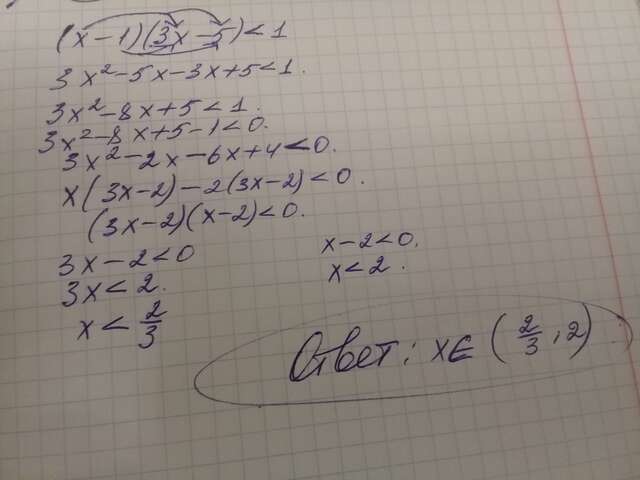 (x-1)(3x-5)<1
3x²-5x-3x+5<1.
3x²-8x+5<1.
3x²-8x+5-1<0.
3x²-2x-6x+4<0.
x(3x-2)-2(3x-2)<0.
(3x-2)(x-2)<0.
3x-2<0 x-2<0.
3x<2. x<2.
x<2/3
Ответ: x∈(2/3,2)